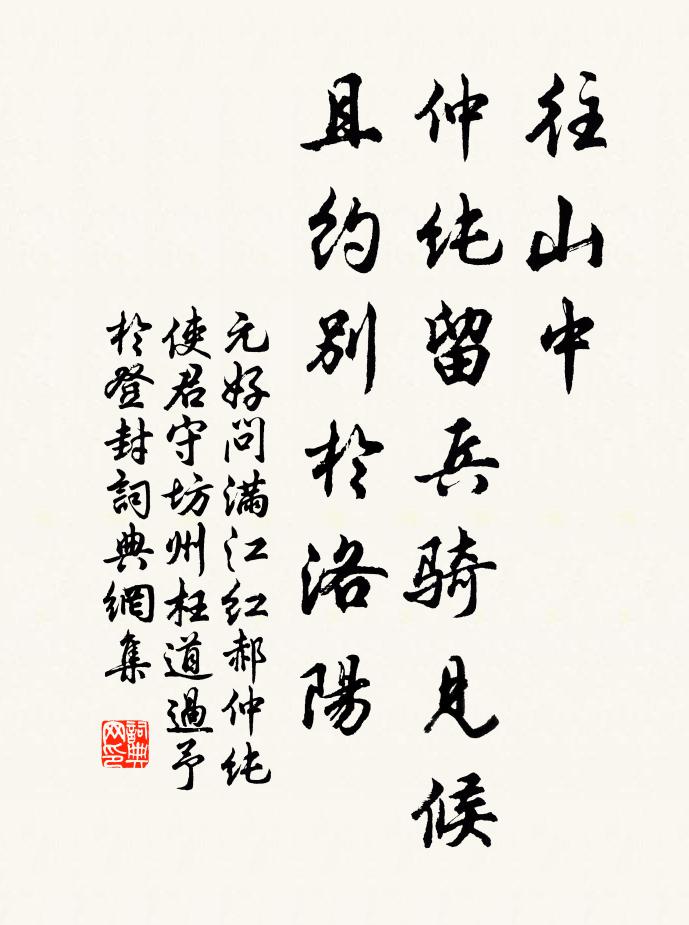 往山中
仲纯留兵騎見候
且約别於洛陽
元好問满江红郝仲纯
使君守坊州枉道過予
於登封詞典網集
詞典网印